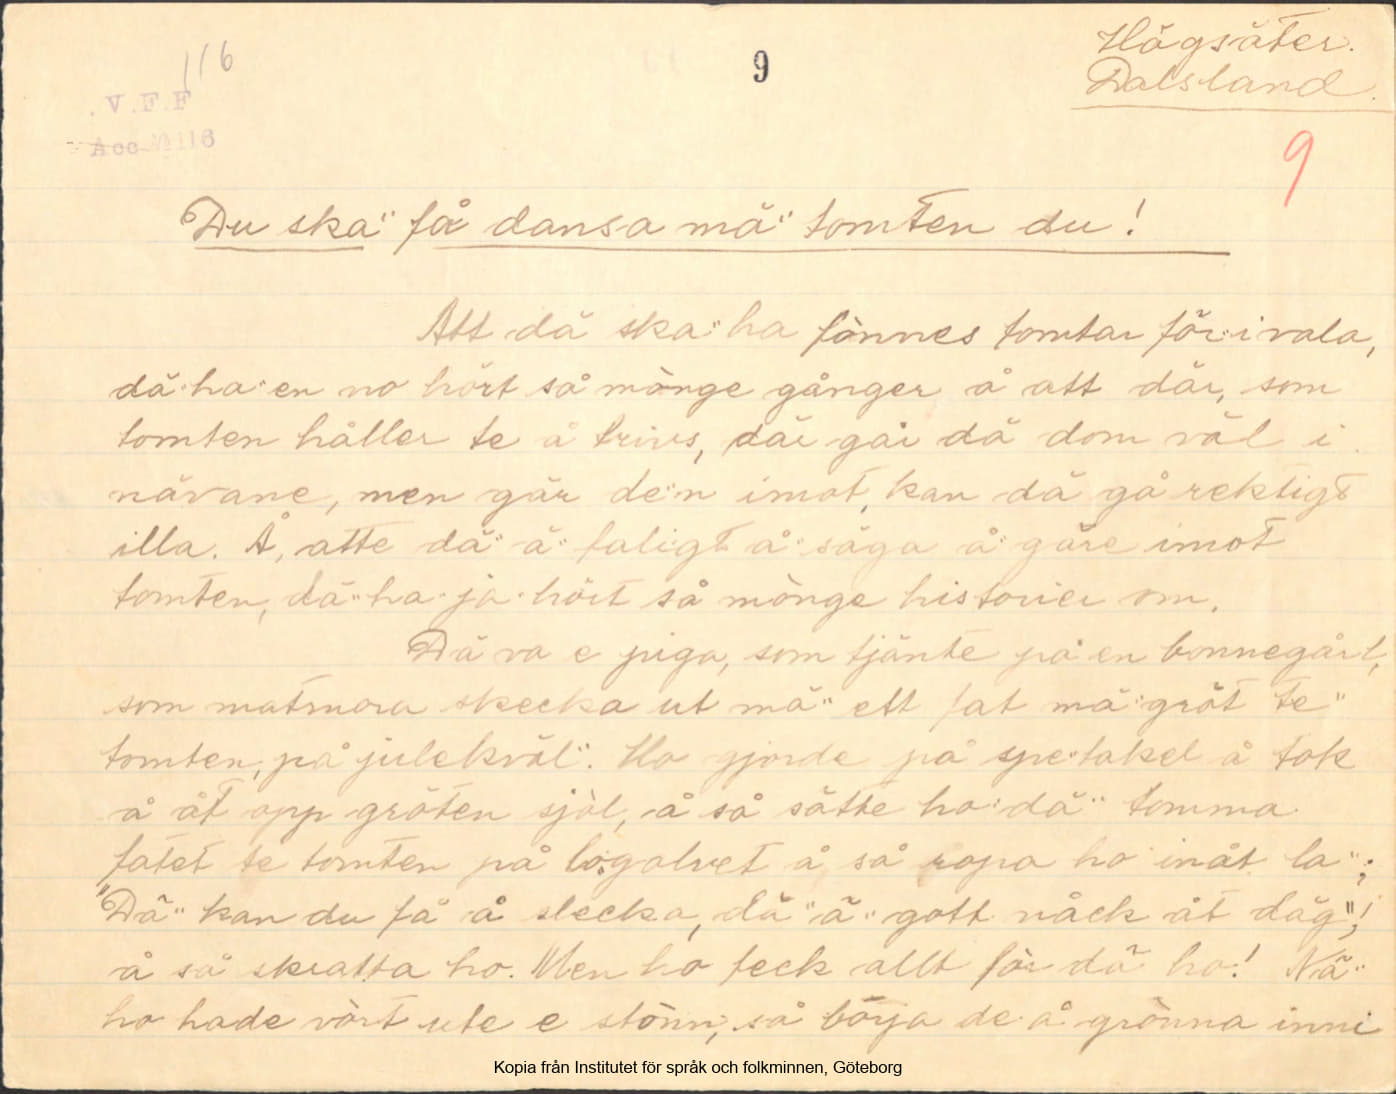 116
9
Högsäter.
Dalsland.
V.F.F
Acc No 116
9
Du ska" få dansa mä" tomten du!
Att dä ska" ha fönnes tomtar för i vala,
dä" ha" en no hört så mönge gånger å att där, som
tomten håller te å trivs, där går dä dom väl i
nävane, men går de"n imot, kan dä gå rektigt
illa. Å, atte dä" ä" faligt å" säga å" göre imot
tomten, dä" ha" ja" hört så mönge historier om.
Dä va e piga, som tjänte på en bonnegård,
som matmora skecka ut mä" ett fat mä" gröt te"
tomten, på julekväl". Ho gjorde på spe"takel å tok
å åt opp gröten själ, å så sätte ho" dä" tomma
fatet te tomten på logolvet å så ropa ho inåt la":
"Dä" kan du få å slecka, dä" ä" gott nåck åt däg"!
å så skratta ho. Men ho feck allt för dä ho! Nä"
ho hade vört ute e stönn, så börja de" å" grönna inni
Kopia från Institutet för språk och folkminnen, Göteborg